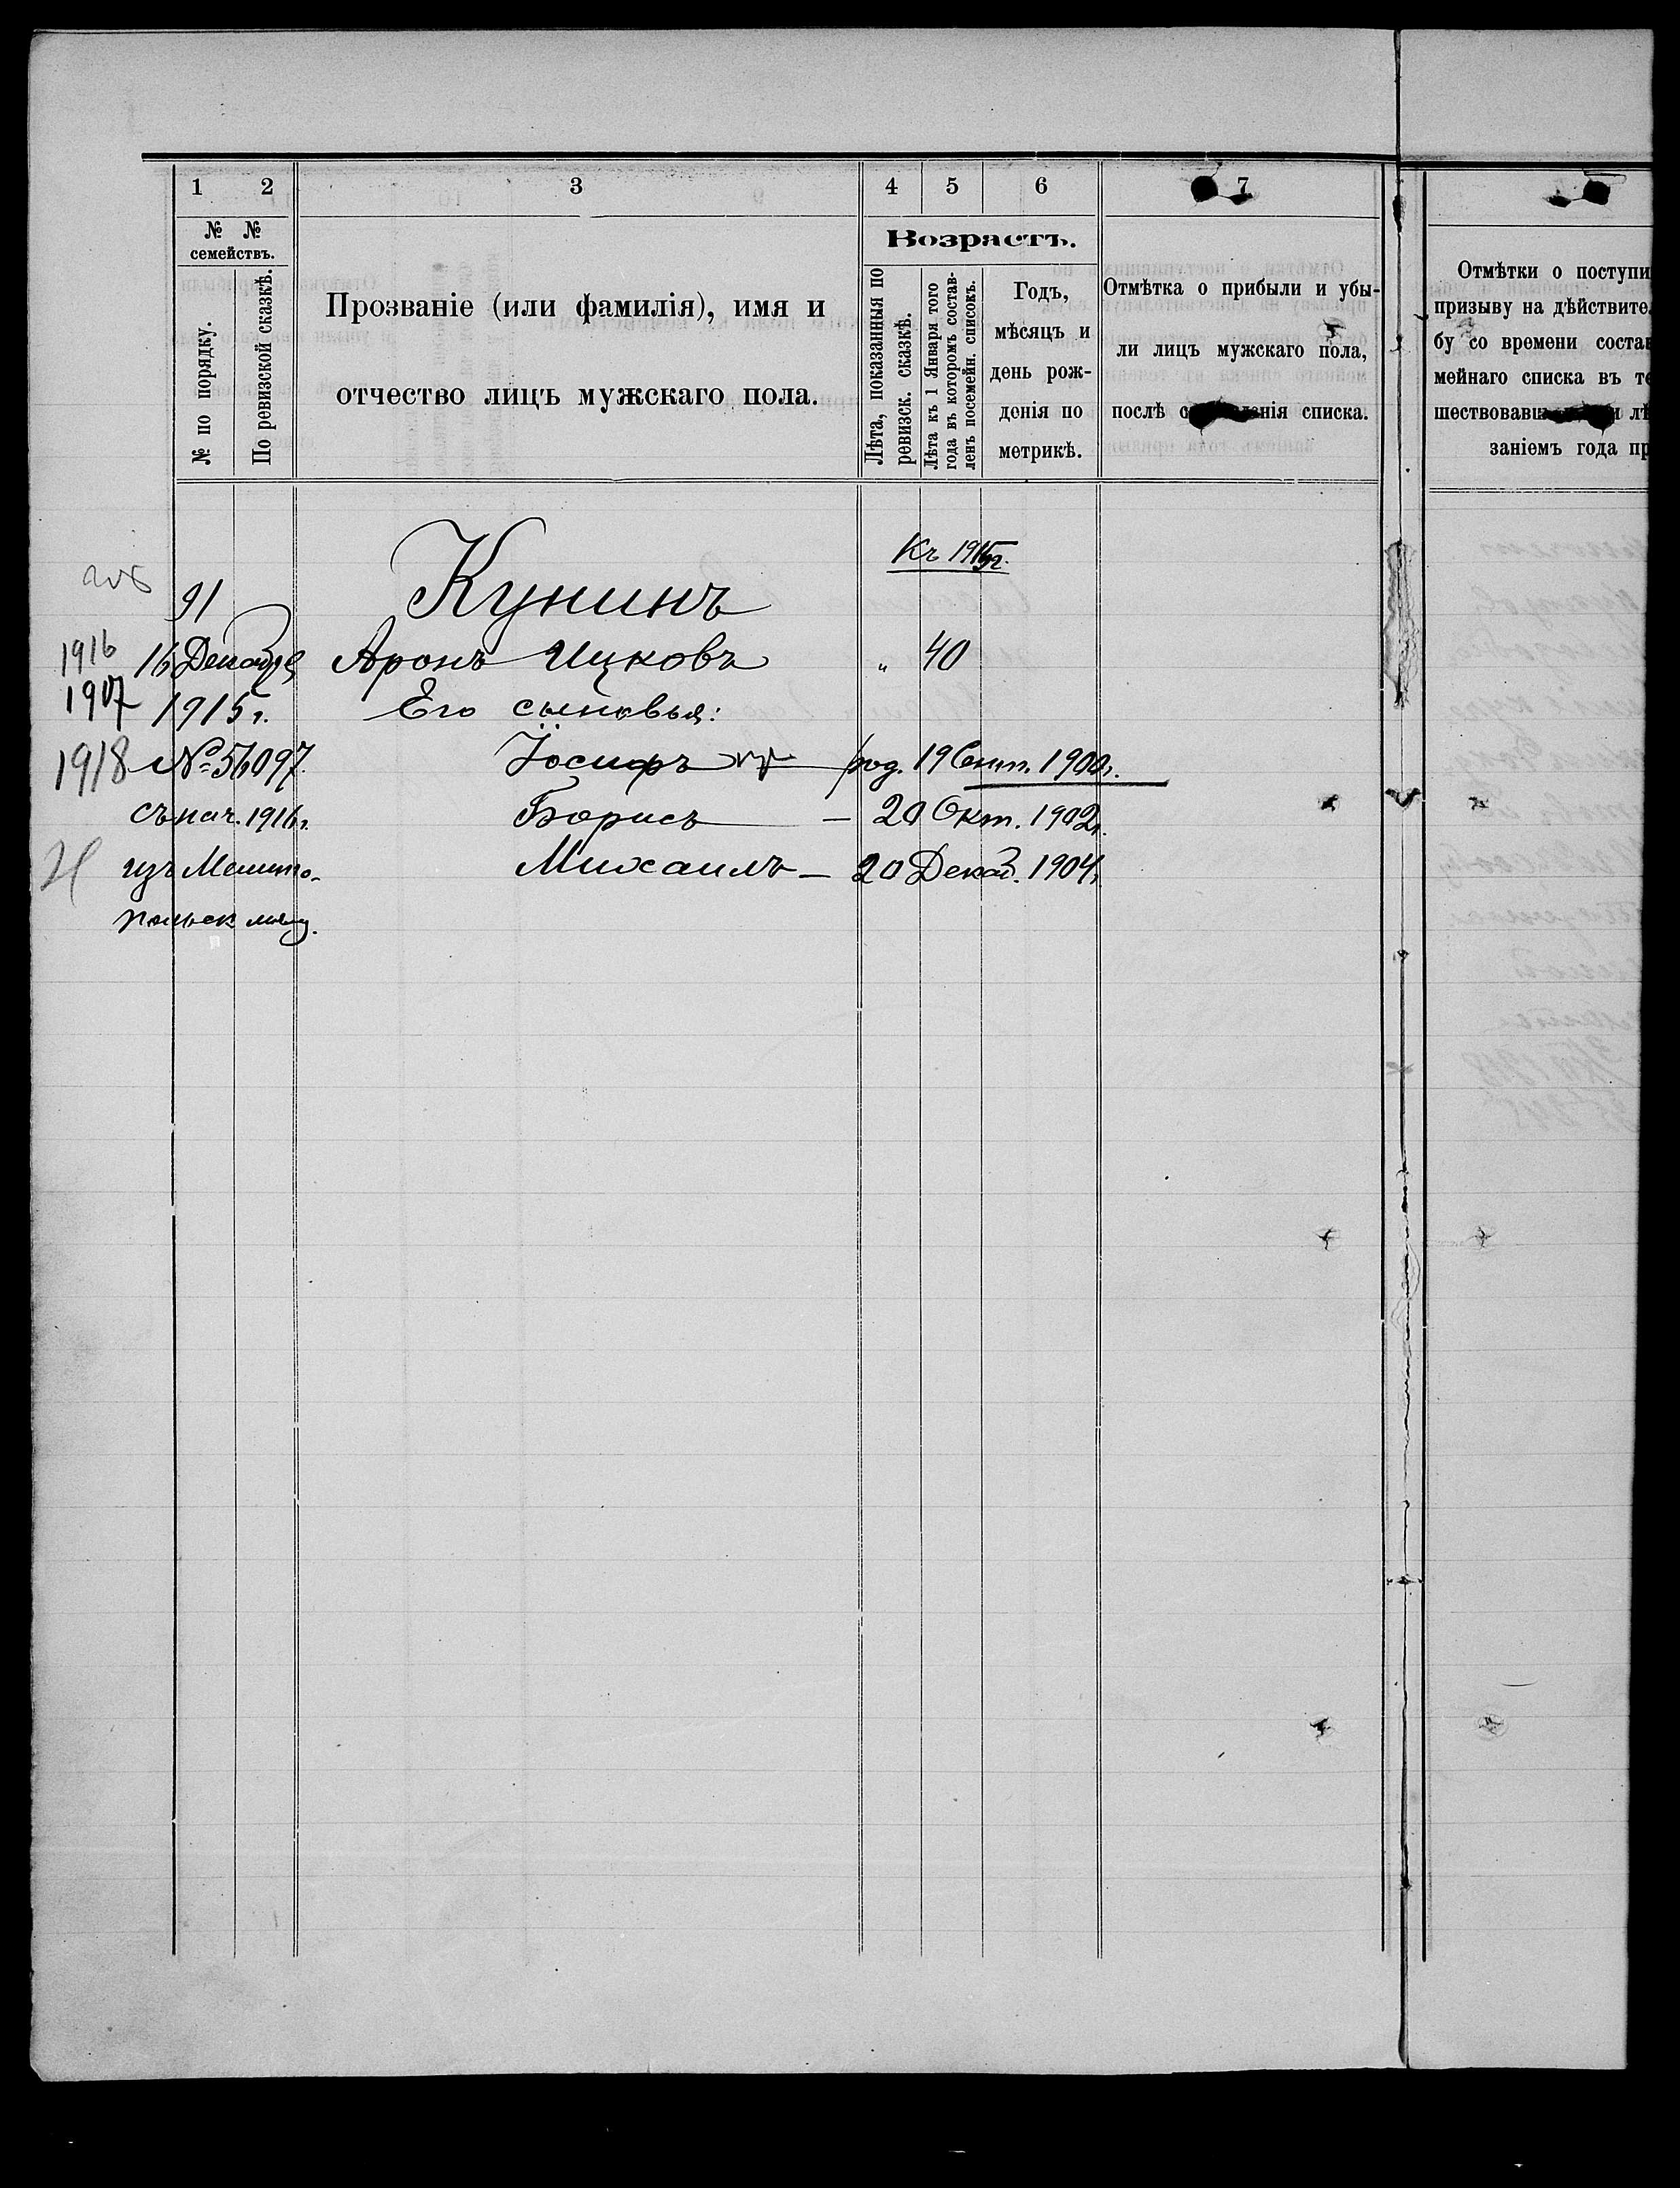 1 2 3 4 5 6 7
№ № семействъ.
№ по порядку.
По ревизской сказкѣ.
Прозваніе (или фамилія), имя и
отчество лицъ мужскаго пола.
Возрастъ.
Лѣта, показанныя по
ревизск. сказкѣ.
Лѣта къ 1 Января того
года въ которомъ состав-
ленъ посемейн. списокъ.
Годъ,
мѣсяцъ и
день рож-
денія по
метрикѣ.
Отмѣтка о прибыли и убы-
ли лицъ мужскаго пола,
послѣ списка.
Отмѣтки о поступи
призыву на дѣйствител
бу со времени состав
мейнаго списка въ те
шествовавш лѣ
заніемъ года пр
Къ 1915г.
91 Кунинъ
1916 16 Декабря Аронъ Ицковъ „ 40
1907 1915 г. Его сыновья:
1918 № 56097. Іосифъ род. 19 Сент. 1900 г.
съ нач. 1916 г. Борисъ — 20 Окт. 1902 г.
изъ Мелито- Михаилъ — 20 Декаб. 1904 г.
польск мѣщ.